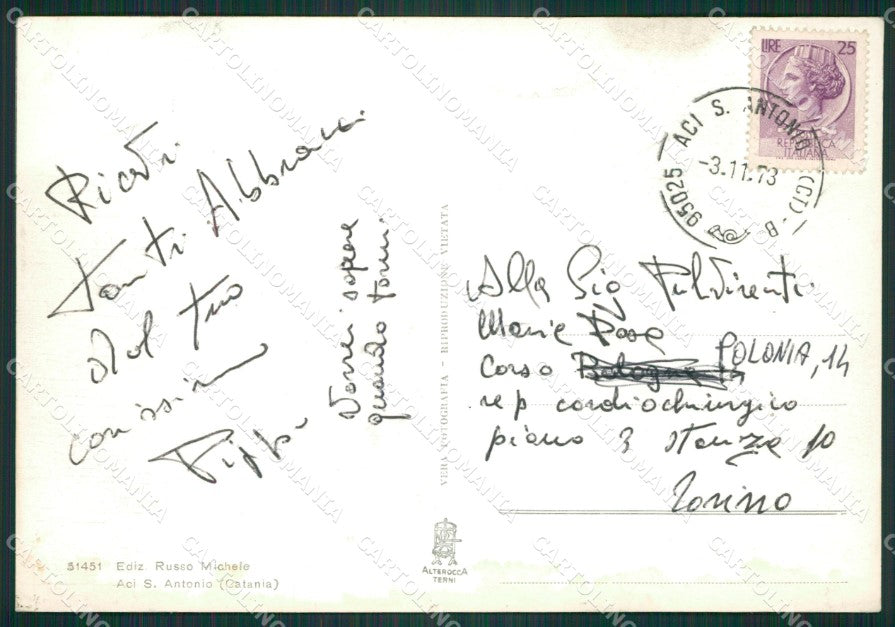 Ricevi
tanti Abbracci
dal tuo
carissimo
Pippo
Vorrei sapere
quando torni.
VERA FOTOGRAFIA - RIPRODUZIONE VIETATA
LIRE 25
REPUBBLICA
ITALIANA
95025 ACI S. ANTONIO (CT) - B
-3.11.73
Alla Sig Pulvirenti
Maria Rosa
Corso Bologna POLONIA, 14
rep cardiochirurgico
piano 3 stanza 10
Torino
51451 Ediz. Russo Michele
Aci S. Antonio (Catania)
ALTEROCCA
TERNI
CARTOLINOMANIA